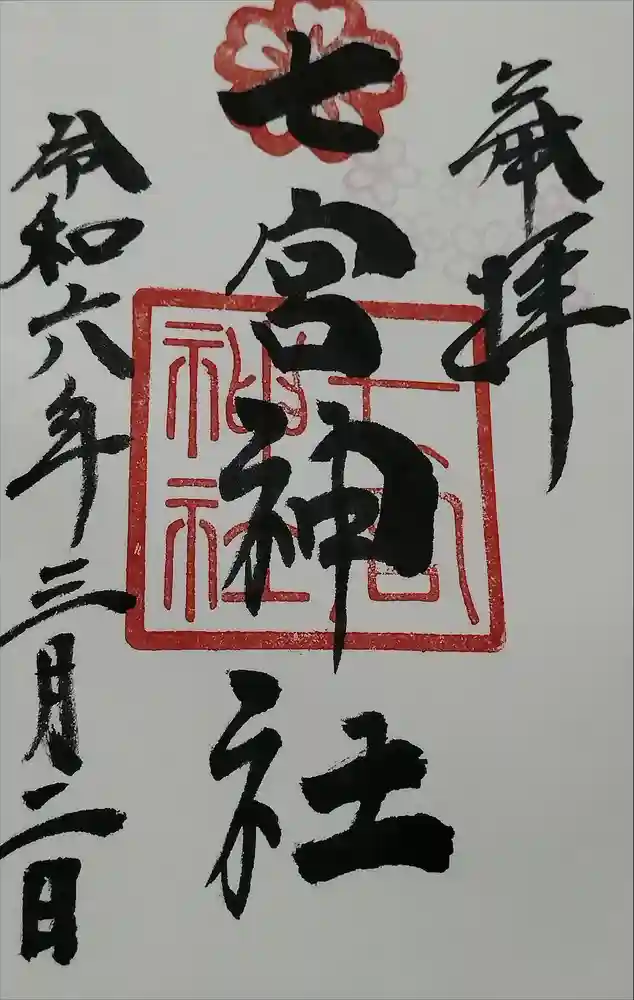 奉拝
七宮神社
七宮
神社
令和六年三月二日